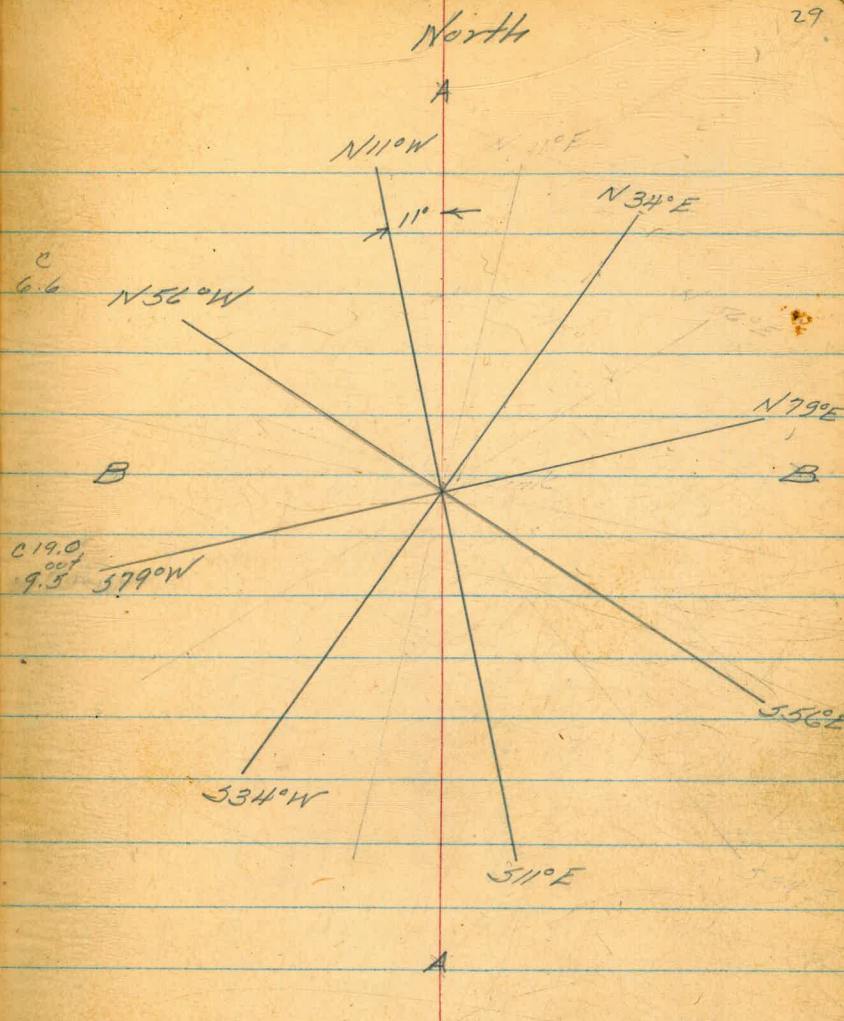 29
North
A
N11°W
N 11°E
N 34°E
11°
C
6.6
N56°W
N79°E
B
B
C19.0
out
9.5
S79°W
S56°E
S34°W
S11°E
A